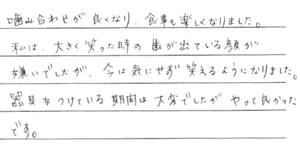 噛み合わせが良くなり、食事も楽しくなりました。
私は、大きく笑った時の歯が出ている顔が
嫌いでしたが、今は気にせず笑えるようになりました。
器具をつけている期間は大変でしたが やって良かった
です。